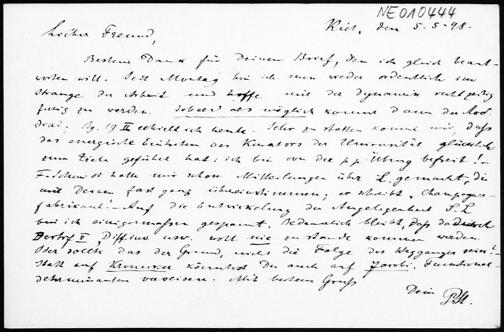 NE010444
Lieber Freund, Kiel, den 5.5.98.
Besten Dank für Deinen Brief, den ich gleich beant-
worten will. Seit Montag bin ich nun wieder ordentlich im
strange der Arbeit und hoffe mit der Dynamik rechtzeitig
fertig zu werden. Sobald als möglich kommt dann der
Bg. 19 II erhielt ich heute. Sehr zu statten kommt mir, dass
das energische des Kurators der Universität glücklich
zum Ziele geführt hat: ich bin von der pp Übung befreit!
F. Schmidt hatte mir schon Mitteilungen über L. gemacht, die
mit Deinen fast ganz übereinstimmen; er schrieb: Champagner-
fabricant! Auf die Entwickelung der Angelegenheit S. L
bin ich einigermassen gespannt. Bedauerlich bleibt, dass
II, usw. wohl nie zu stande kommen werden.
Oder sollte das der Grund, nicht die Folge des Wegganges sein?
Statt auf Kronecker könntest Du auch auf Jacobi, Functional-
determinanten verweisen. Mit bestem Gruss
Dein